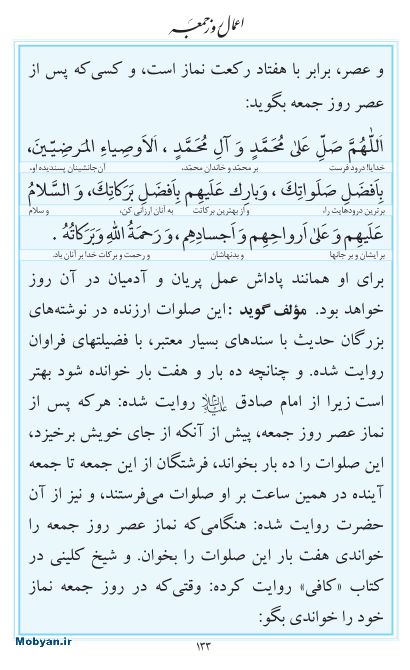 اعمال روز جمعه
و عصر، برابر با هفتاد رکعت نماز است، و کسی‌که پس از
عصر روز جمعه بگوید:
اَللّٰهُمَّ صَلِّ عَلیٰ مُحَمَّدٍ وَ آلِ مُحَمَّدٍ ، اَلاَوصِیاءِ المَرضِیّینَ،
خدایا! درود فرست بر محمّد و خاندان محمّد، آن جانشینان پسندیده او،
بِاَفضَلِ صَلَواتِكَ ، وَبارِك عَلَیهِم بِاَفضَلِ بَرَكاتِكَ، وَ السَّلامُ
برترین درودهایت را، و از بهترین برکاتت به آنان ارزانی کن، و سلام
عَلَیهِم وَ عَلیٰ اَرواحِهِم وَ اَجسادِهِم، وَ رَحمَةُ اللهِ وَبَرَكاتُهُ .
بر ایشان و بر جانها و بدنهاشان و رحمت و برکات خدا بر آنان باد.
برای او همانند پاداش عمل پریان و آدمیان در آن روز
خواهد بود. مؤلف گوید : این صلوات ارزنده در نوشته‌های
بزرگان حدیث با سندهای بسیار معتبر، با فضیلتهای فراوان
روایت شده. و چنانچه ده بار و هفت بار خوانده شود بهتر
است زیرا از امام صادق علیه‌السلام روایت شده: هرکه پس از
نماز عصر روز جمعه، پیش از آنکه از جای خویش برخیزد،
این صلوات را ده بار بخواند، فرشتگان از این جمعه تا جمعه
آینده در همین ساعت بر او صلوات می‌فرستند، و نیز از آن
حضرت روایت شده: هنگامی‌که نماز عصر روز جمعه را
خواندی هفت بار این صلوات را بخوان. و شیخ کلینی در
کتاب «کافی» روایت کرده: وقتی‌که در روز جمعه نماز
خود را خواندی بگو:
۱۳۳
Mobyan.ir